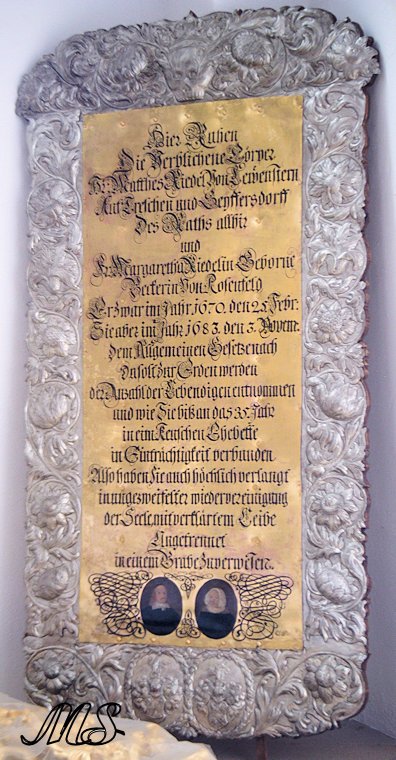 Hier Ruhen
Die Verblichene Cörper
Hr. Matthes Riedel Von Lewenstern
Auf Treschen und Seyffersdorff
Des Raths allhir
und
Fr. Margaretha Riedelin Geborne
Beckerin Von Rosenfeld
Er zwar im Jahr 1670. den 25. Febr:
Sie aber im Jahr 1683. den 3. Novem:
dem Allgemeinen Gesetze nach
Du solt zur Erden werden
der Anzahl der Lebendigen entnommen
und wie Sie biß an das 35. Jahr
in eim Keuschen Ehebette
in Einträchtigkeit verbunden
Also haben Sie auch höchlich verlangt
in ungezweifelter wiedervereinigung
der Seele mit verklärtem Leibe
Ungetrennet
in einem Grabe zu verwesen.
MS.